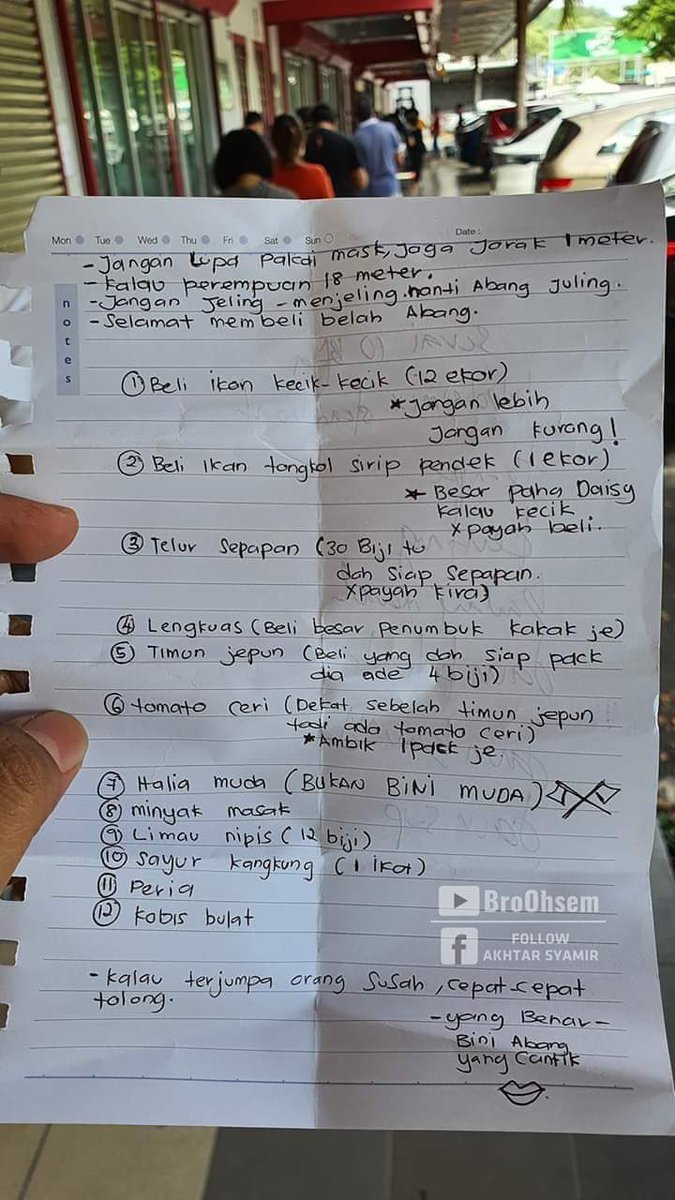 Mon Tue Wed Thu Fri Sat Sun Date:
notes
- Jangan lupa pakai mask, Jaga Jarak 1 meter.
- Kalau perempuan 18 meter.
- Jangan Jeling - menjeling. nanti Abang Juling.
- Selamat membeli belah Abang.
① Beli ikan kecik-kecik (12 ekor)
* Jangan lebih
Jangan kurang!
② Beli Ikan tongkol sirip pendek (1 ekor)
* Besar paha Daisy
kalau kecik.
x payah beli.
③ Telur Sepapan (30 Biji tu
dah siap Sepapan.
x payah kira)
④ Lengkuas (Beli besar Penumbuk kakak je)
⑤ Timun jepun (Beli yang dah siap pack
dia ade 4 biji)
⑥ tomato ceri (Dekat sebelah timun jepun
tadi ada tomato ceri)
* Ambik 1 pack je
⑦ Halia muda (BUKAN BINI MUDA)
⑧ minyak masak
⑨ Limau nipis (12 biji)
⑩ Sayur kangkung (1 ikat)
⑪ Peria
⑫ Kobis bulat
- Kalau terjumpa orang Susah, cepat-cepat
tolong.
- yang Benar -
Bini Abang
yang Cantik
BroOhsem
FOLLOW
AKHTAR SYAMIR